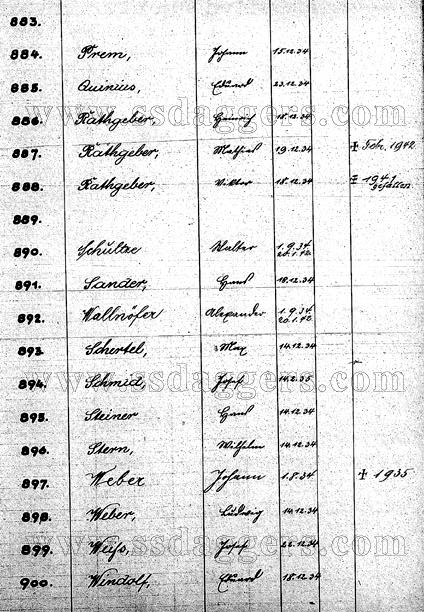 883.
884. Prem, Johann 15.12.34
885. Quinius, Eduard 23.12.34
886. Rathgeber, Heinrich 18.12.34
www.ssdaggers.com
887. Rathgeber, Mathias 19.12.34 ‡ Feb. 1942
888. Rathgeber, Viktor 18.12.34 ‡ 1941
gefallen
889.
890. Schultze Walter 1.9.34
20.1.42
891. Sander, Hans 18.12.34
892. Wallnöfer Alexander 1.9.34
20.1.42
893. Schertel, Max 14.12.34
894. Schmid, Josef 14.2.35
www.ssdaggers.com
895. Steiner Hans 14.12.34
896. Stern, Wilhelm 14.12.34
897. Weber Johann 1.8.34 ‡ 1935
898. Weber, Ludwig 14.12.34
899. Weiß, Josef 26.12.34
www.ssdaggers.com
900. Windolf, Eduard 18.12.34